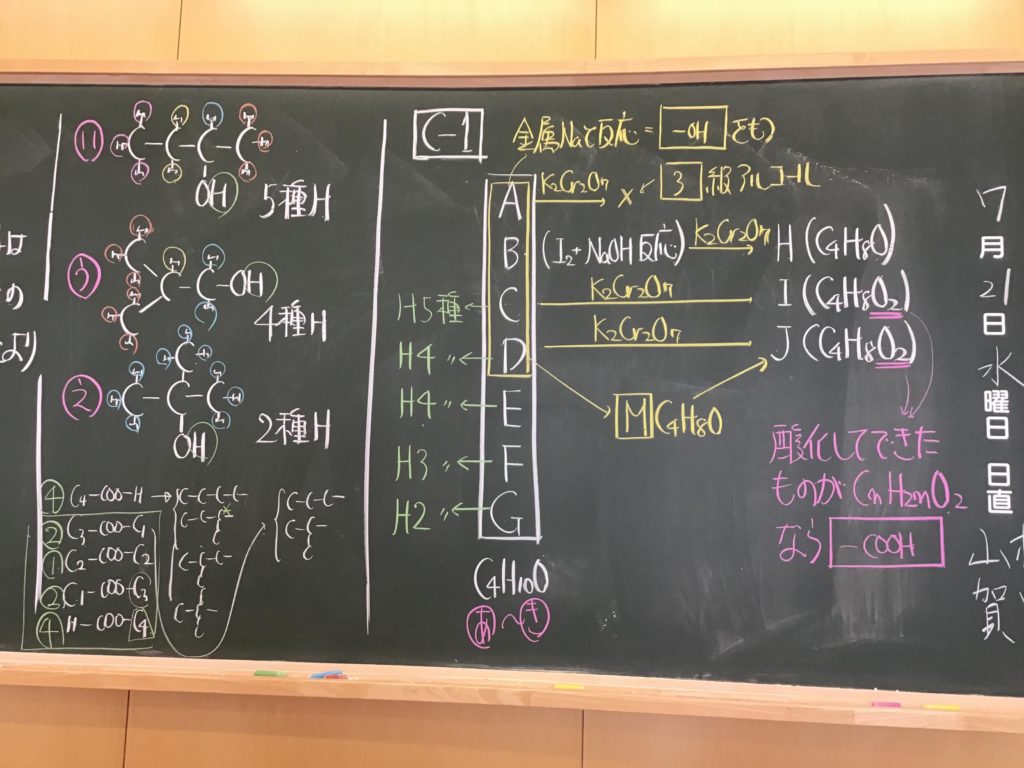 11
OH
5種H
3
OH
4種H
2
OH
2種H
④ C4-COO-H → C-C-C-C-
② C3-COO-C1
① C2-COO-C2
② C1-COO-C3
④ H-COO-C4
C-1
金属Naと反応=-OHをもつ
A K2Cr2O7 × 3級アルコール
B (I2+NaOH反応) K2Cr2O7 H (C4H8O)
H5種 ← C K2Cr2O7 I (C4H8O2)
H4〃 ← D K2Cr2O7 J (C4H8O2)
H4〃 ← E
M C4H8O
H3〃 ← F
H2〃 ← G
C4H10O
あ~き
酸化してできた
ものがCnH2nO2
なら -COOH
7
月
21
日
水
曜
日
日
直
山
賀